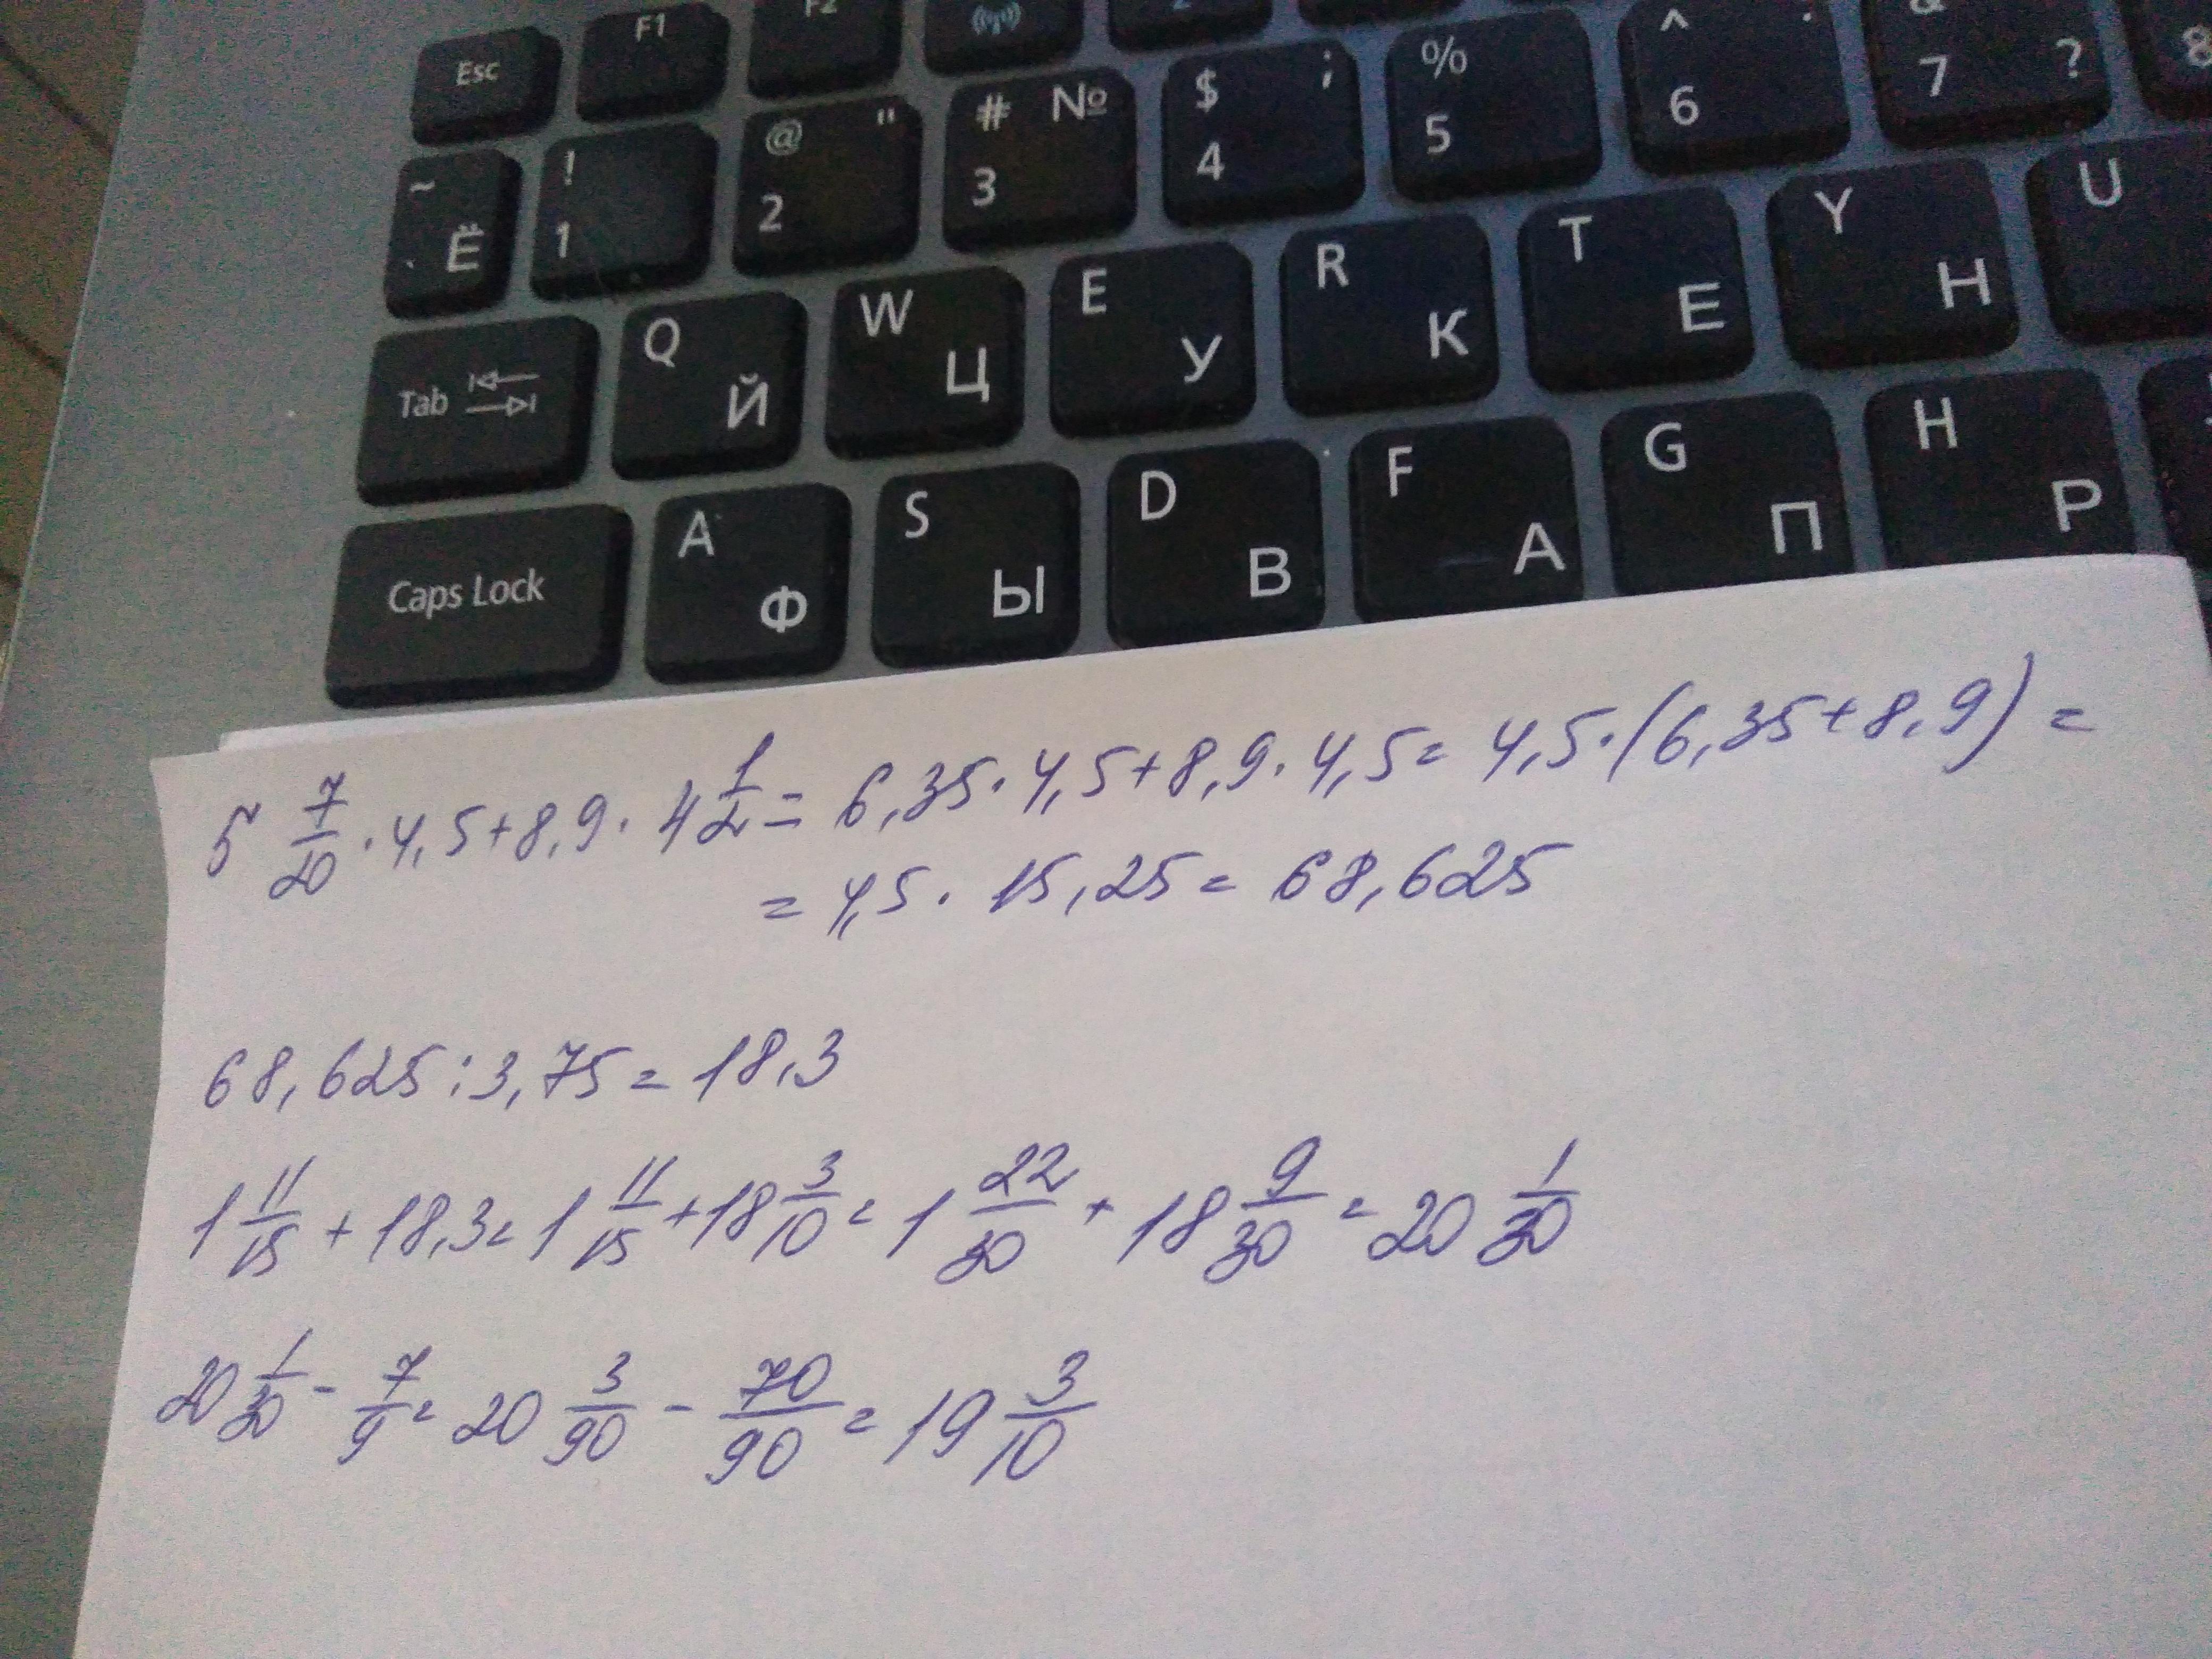 Esc F1 F2
~ Ё ! 1 @ " 2 # № 3 $ ; 4 % 5 ^ 6 & 7 ? &
Tab Q Й W Ц E У R К T Е Y Н U
Caps Lock A Ф S Ы D В F А G П H Р
5 7/20 · 4,5 + 8,9 · 4 1/2 = 6,35 · 4,5 + 8,9 · 4,5 = 4,5 · (6,35 + 8,9) =
= 4,5 · 15,25 = 68,625
68,625 : 3,75 = 18,3
1 11/15 + 18,3 = 1 11/15 + 18 3/10 = 1 22/30 + 18 9/30 = 20 1/30
20 1/30 - 7/9 = 20 3/90 - 70/90 = 19 3/10